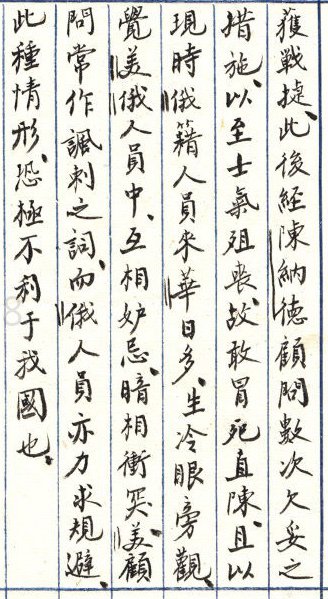 獲戰捷、此後經陳納德顧問數次欠妥之
措施、以至士氣殂喪、故敢冒死直陳、且以
現時俄籍人員來華日多、生冷眼旁觀、
覺美俄人員中、互相妒忌、暗相衝突、美顧
問常作諷刺之詞、而俄人員亦力求規避、
此種情形、恐極不利于我國也、